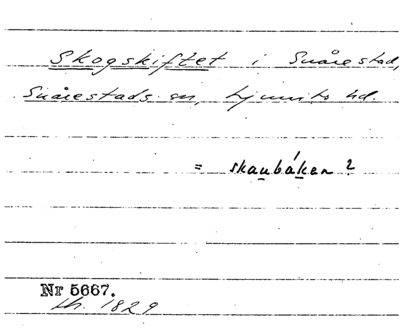 Skogskiftet i Snårestad,
Snårestads sn, Ljunits hd.
= skaubáken?
Nr 5667.
th. 1829